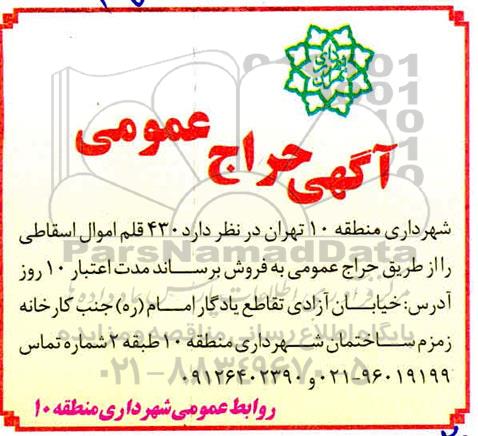 آگهی حراج عمومی
شهرداری منطقه ۱۰ تهران در نظر دارد ۴۳۰ قلم اموال اسقاطی
را از طریق حراج عمومی به فروش برساند مدت اعتبار ۱۰ روز
آدرس: خیابان آزادی تقاطع یادگار امام (ره) جنب کارخانه
زمزم ساختمان شهرداری منطقه ۱۰ طبقه ۲ شماره تماس
۰۲۱-۹۶۰۱۹۱۹۹ و ۰۹۱۲۶۴۰۲۳۹۰
روابط عمومی شهرداری منطقه ۱۰
ParsNamadData
پایگاه اطلاع رسانی مناقصه و مزایده
۰۲۱-۸۸۳۴۹۶۷۰-۵